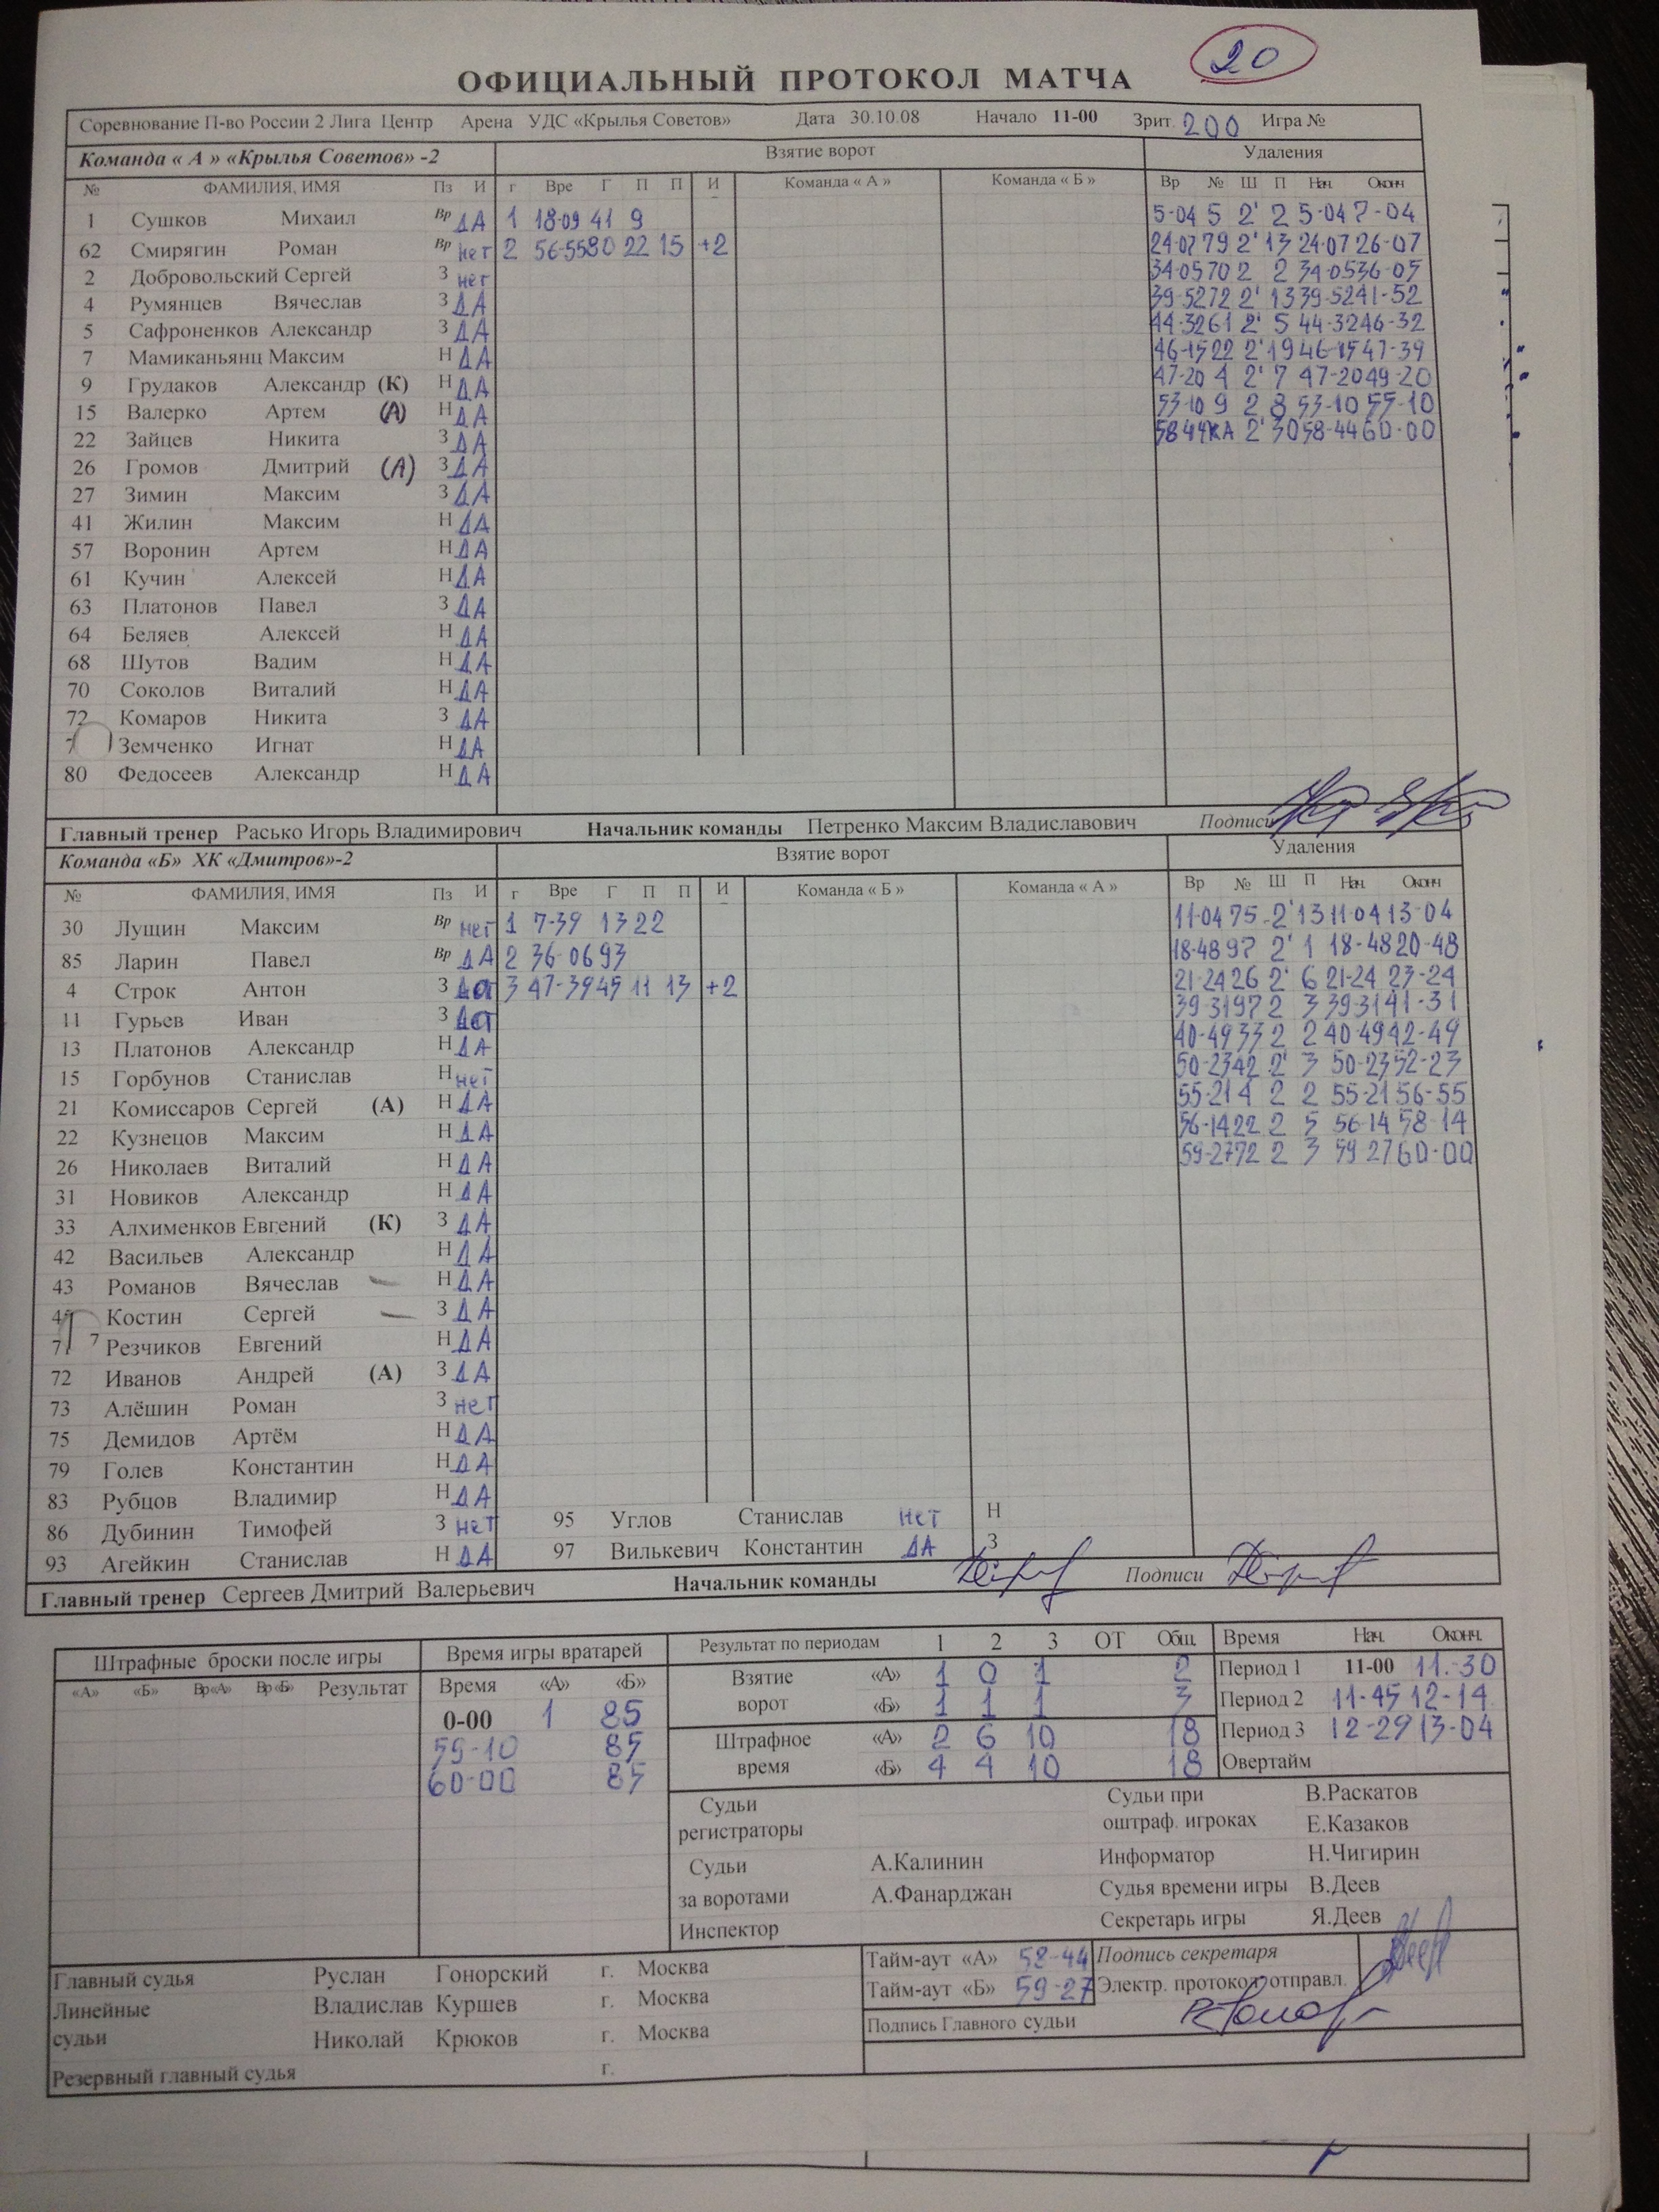 20
ОФИЦИАЛЬНЫЙ ПРОТОКОЛ МАТЧА
Соревнование П-во России 2 Лига Центр Арена УДС «Крылья Советов» Дата 30.10.08 Начало 11-00 Зрит. 200 Игра №
Команда « А » «Крылья Советов» -2 Взятие ворот Удаления
№ ФАМИЛИЯ, ИМЯ Пз И г Вре Г П П И Команда « А » Команда « Б » Вр № Ш П Нач. Оконч
1 Сушков Михаил Вр ДА 1 18-09 41 9 5-04 5 2' 2 5-04 7-04
62 Смирягин Роман Вр нет 2 56-55 80 22 15 +2 24-07 79 2' 13 24-07 26-07
2 Добровольский Сергей З нет 34-05 70 2 2 34-05 36-05
4 Румянцев Вячеслав З ДА 39-52 72 2' 13 39-52 41-52
5 Сафроненков Александр З ДА 44-32 61 2' 5 44-32 46-32
7 Мамиканьянц Максим Н ДА 46-15 22 2' 19 46-15 47-39
9 Грудаков Александр (К) Н ДА 47-20 4 2' 7 47-20 49-20
15 Валерко Артем (А) Н ДА 53-10 9 2 8 53-10 55-10
22 Зайцев Никита З ДА 58-44 КА 2' 30 58-44 60-00
26 Громов Дмитрий (А) З ДА
27 Зимин Максим З ДА
41 Жилин Максим Н ДА
57 Воронин Артем Н ДА
61 Кучин Алексей Н ДА
63 Платонов Павел З ДА
64 Беляев Алексей Н ДА
68 Шутов Вадим Н ДА
70 Соколов Виталий Н ДА
72 Комаров Никита З ДА
7 Земченко Игнат Н ДА
80 Федосеев Александр Н ДА
Главный тренер Расько Игорь Владимирович Начальник команды Петренко Максим Владиславович Подписи
Команда «Б» ХК «Дмитров»-2 Взятие ворот Удаления
№ ФАМИЛИЯ, ИМЯ Пз И г Вре Г П П И Команда « Б » Команда « А » Вр № Ш П Нач. Оконч
30 Лущин Максим Вр нет 1 7-39 13 22 11-04 75 2' 13 11-04 13-04
85 Ларин Павел Вр ДА 2 36-06 93 18-48 97 2' 1 18-48 20-48
4 Строк Антон З 3 47-39 45 11 13 +2 21-24 26 2' 6 21-24 23-24
11 Гурьев Иван З 39-31 97 2 3 39-31 41-31
13 Платонов Александр Н ДА 40-49 33 2 2 40-49 42-49
15 Горбунов Станислав Н нет 50-23 42 2' 3 50-23 52-23
21 Комиссаров Сергей (А) Н ДА 55-21 4 2 2 55-21 56-55
22 Кузнецов Максим Н ДА 56-14 22 2 5 56-14 58-14
26 Николаев Виталий Н ДА 59-27 72 2 3 59-27 60-00
31 Новиков Александр Н ДА
33 Алхименков Евгений (К) З ДА
42 Васильев Александр Н ДА
43 Романов Вячеслав Н ДА
Костин Сергей З ДА
7 Резчиков Евгений Н ДА
72 Иванов Андрей (А) З ДА
73 Алёшин Роман З нет
75 Демидов Артём Н ДА
79 Голев Константин Н ДА
83 Рубцов Владимир Н ДА
86 Дубинин Тимофей З нет 95 Углов Станислав нет Н
93 Агейкин Станислав Н ДА 97 Вилькевич Константин ДА З
Главный тренер Сергеев Дмитрий Валерьевич Начальник команды Подписи
Штрафные броски после игры Время игры вратарей Результат по периодам 1 2 3 ОТ Общ. Время Нач. Оконч.
«А» «Б» Вр«А» Вр«Б» Результат Время «А» «Б» Взятие ворот «А» 1 0 1 2 Период 1 11-00 11-30
0-00 1 85 «Б» 1 1 1 3 Период 2 11-45 12-14
59-10 85 Штрафное время «А» 2 6 10 18 Период 3 12-29 13-04
60-00 85 «Б» 4 4 10 18 Овертайм
Судьи регистраторы Судьи при оштраф. игроках В.Раскатов
Е.Казаков
Судьи за воротами А.Калинин Информатор Н.Чигирин
А.Фанарджан Судья времени игры В.Деев
Инспектор Секретарь игры Я.Деев
Главный судья Руслан Гонорский г. Москва Тайм-аут «А» 58-44 Подпись секретаря
Линейные судьи Владислав Куршев г. Москва Тайм-аут «Б» 59-27 Электр. протокол отправл.
Николай Крюков г. Москва Подпись Главного судьи
Резервный главный судья г.